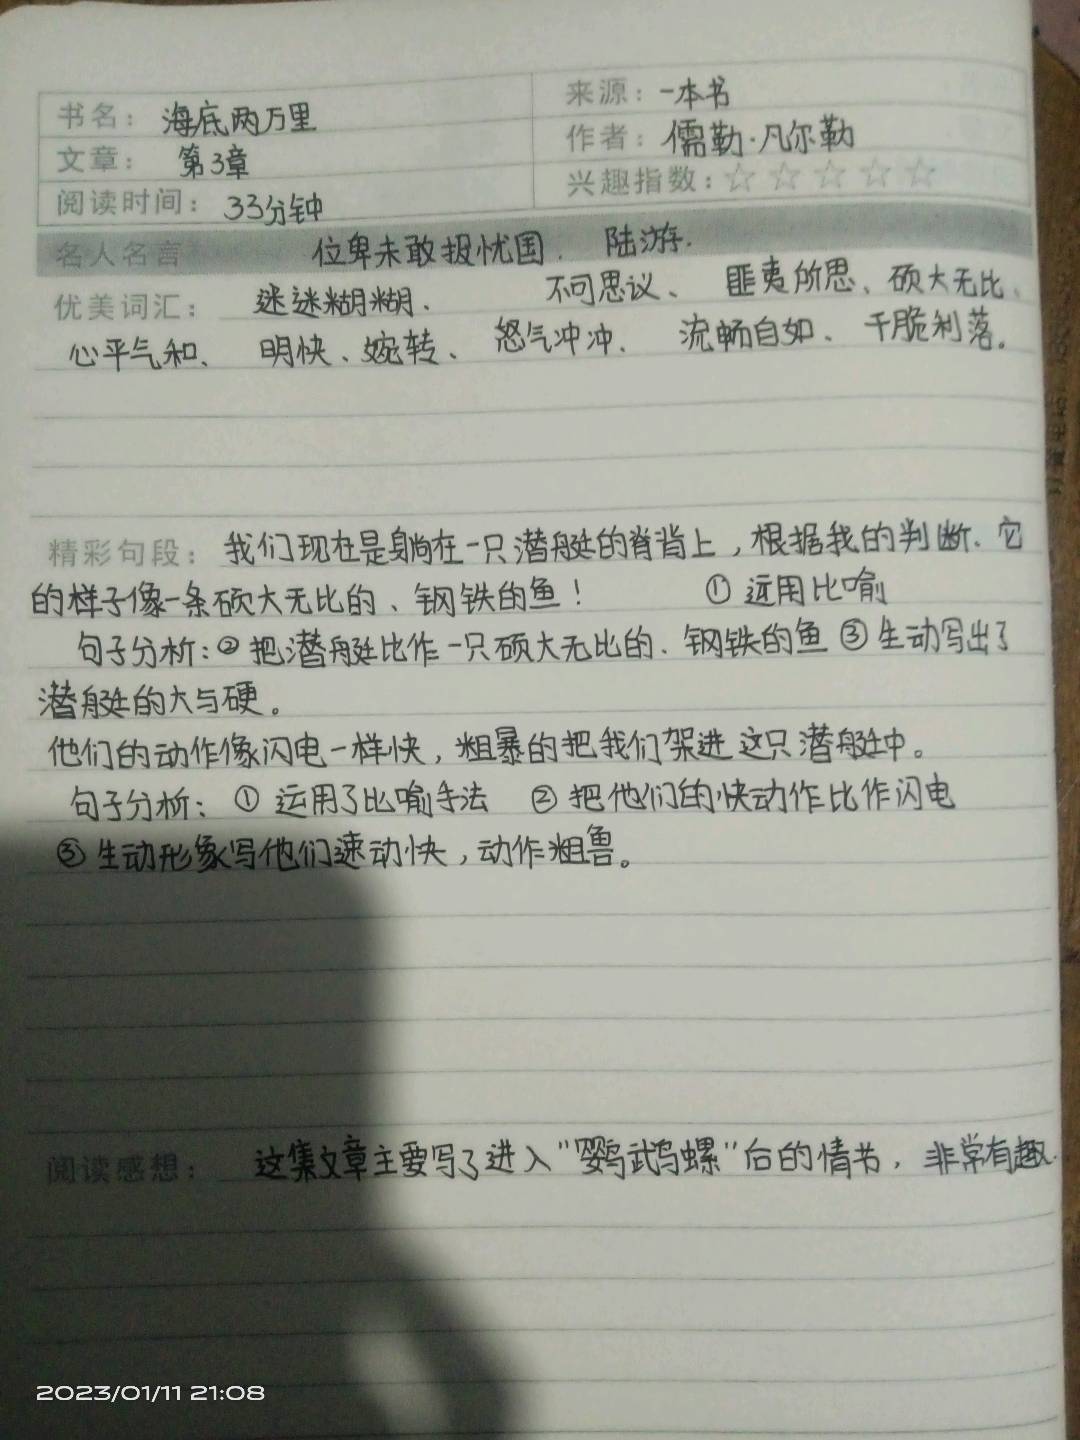 书名：海底两万里
来源：一本书
文章：第3章
作者：儒勒·凡尔勒
阅读时间：33分钟
兴趣指数：☆☆☆☆☆
名人名言 位卑未敢报忧国. 陆游.
优美词汇：迷迷糊糊、不可思议、匪夷所思、硕大无比、
心平气和、明快、婉转、怒气冲冲、流畅自如、干脆利落。
精彩句段：我们现在是躺在一只潜艇的脊背上，根据我的判断、它
的样子像一条硕大无比的、钢铁的鱼！ ①运用比喻
句子分析：②把潜艇比作一只硕大无比的、钢铁的鱼③生动写出了
潜艇的大与硬。
他们的动作像闪电一样快，粗暴的把我们架进这只潜艇中。
句子分析：①运用了比喻手法 ②把他们的快动作比作闪电
③生动形象写他们速动快，动作粗鲁。
阅读感想：这集文章主要写了进入“鹦鹉螺”后的情节，非常有趣.
2023/01/11 21:08